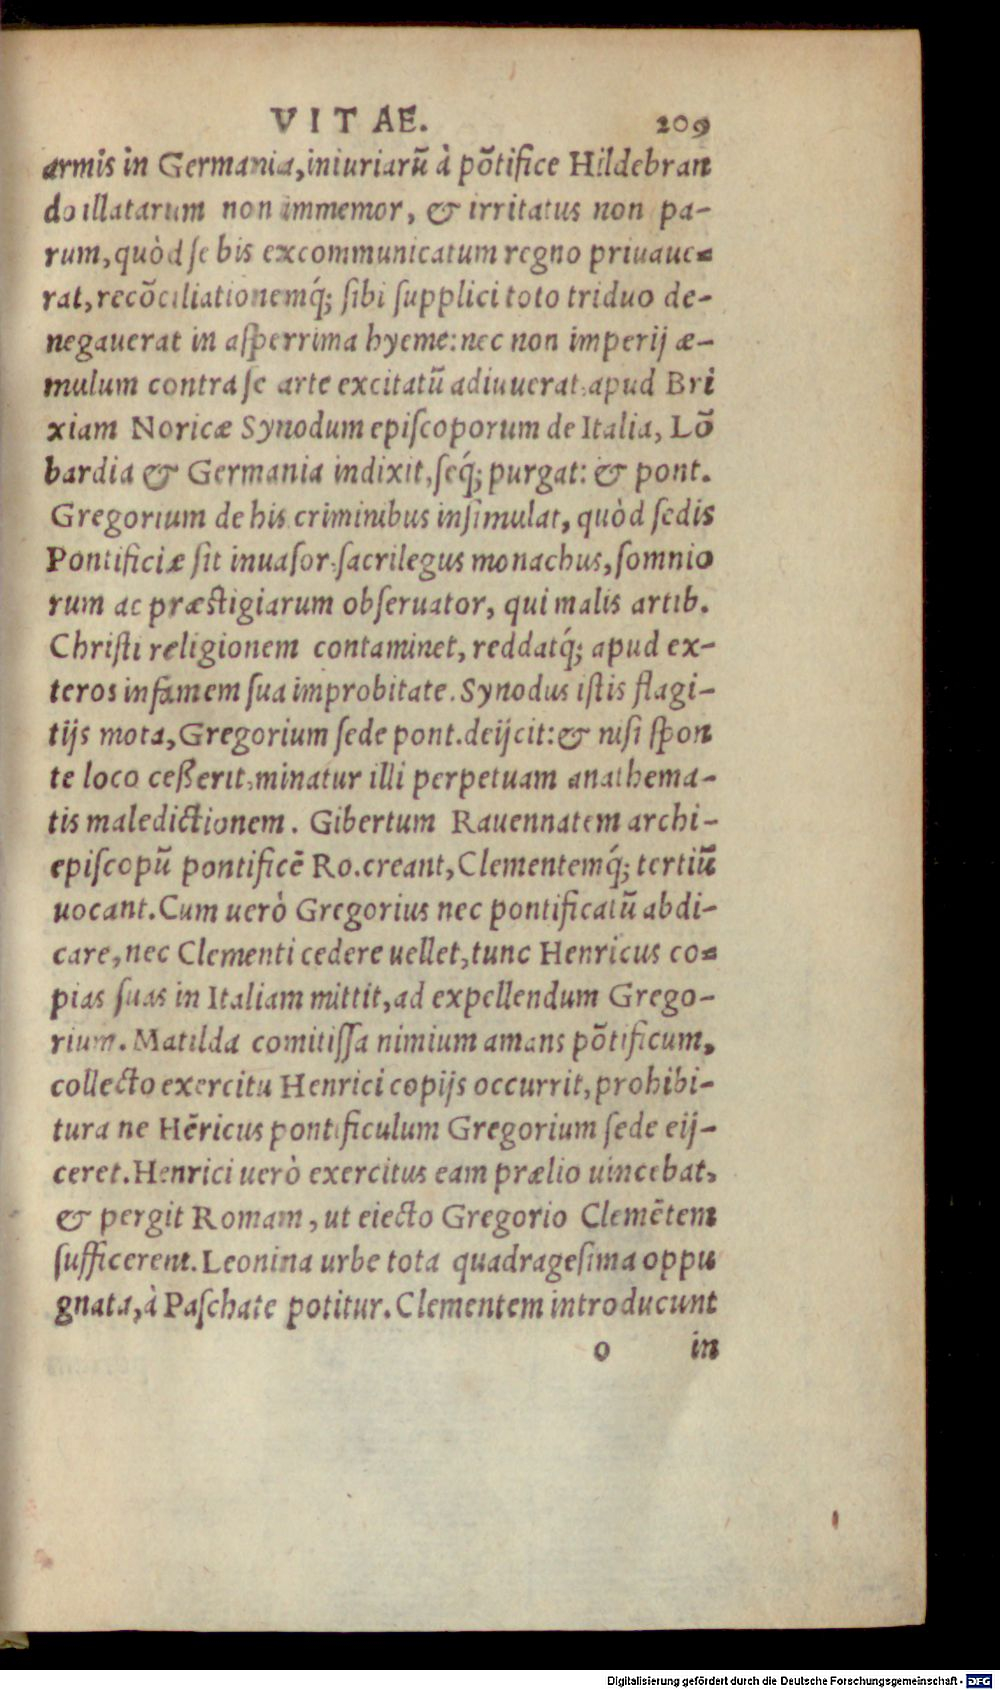 VITAE. 209
armis in Germania, iniuriarū à põtifice Hildebran
do illatarum non immemor, & irritatus non pa-
rum, quòd se bis excommunicatum regno priuaue=
rat, recõciliationemq́; sibi supplici toto triduo de-
negauerat in asperrima hyeme: nec non imperij æ-
mulum contra se arte excitatū adiuuerat, apud Bri
xiam Noricæ Synodum episcoporum de Italia, Lõ
bardia & Germania indixit, seq́; purgat: & pont.
Gregorium de his criminibus insimulat, quòd sedis
Pontificiæ sit inuasor, sacrilegus monachus, somnio
rum ac præstigiarum obseruator, qui malis artib.
Christi religionem contaminet, reddatq́; apud ex-
teros infamem sua improbitate. Synodus istis flagi-
tijs mota, Gregorium sede pont. deijcit: & nisi spon
te loco ceßerit, minatur illi perpetuam anathema-
tis maledictionem. Gibertum Rauennatem archi-
episcopū pontificē Ro. creant, Clementemq́; tertiū
uocant. Cum uerò Gregorius nec pontificatū abdi-
care, nec Clementi cedere uellet, tunc Henricus co=
pias suas in Italiam mittit, ad expellendum Grego-
rium. Matilda comitissa nimium amans põtificum,
collecto exercitu Henrici copijs occurrit, prohibi-
tura ne Hēricus pontificulum Gregorium sede eij-
ceret. Henrici uerò exercitus eam prælio uincebat,
& pergit Romam, ut eiecto Gregorio Clemētem
sufficerent. Leonina urbe tota quadragesima oppu
gnata, à Paschate potitur. Clementem introducunt
o in
Digitalisierung gefördert durch die Deutsche Forschungsgemeinschaft - DFG